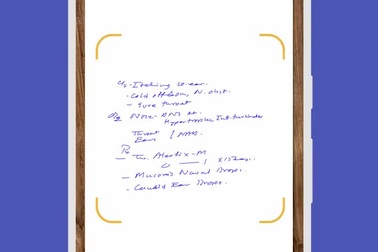 C/o - Itching in ear.
- Cold off & on, N. obst.
- Sore throat
O/E Nose - DNS
Hypertrophic Inf. turbinate
Throat
Ears } NAD.
Rx
- Tab. Alertix-M
x 15 days.
- Nasal Drops.
- Candid Ear Drops.